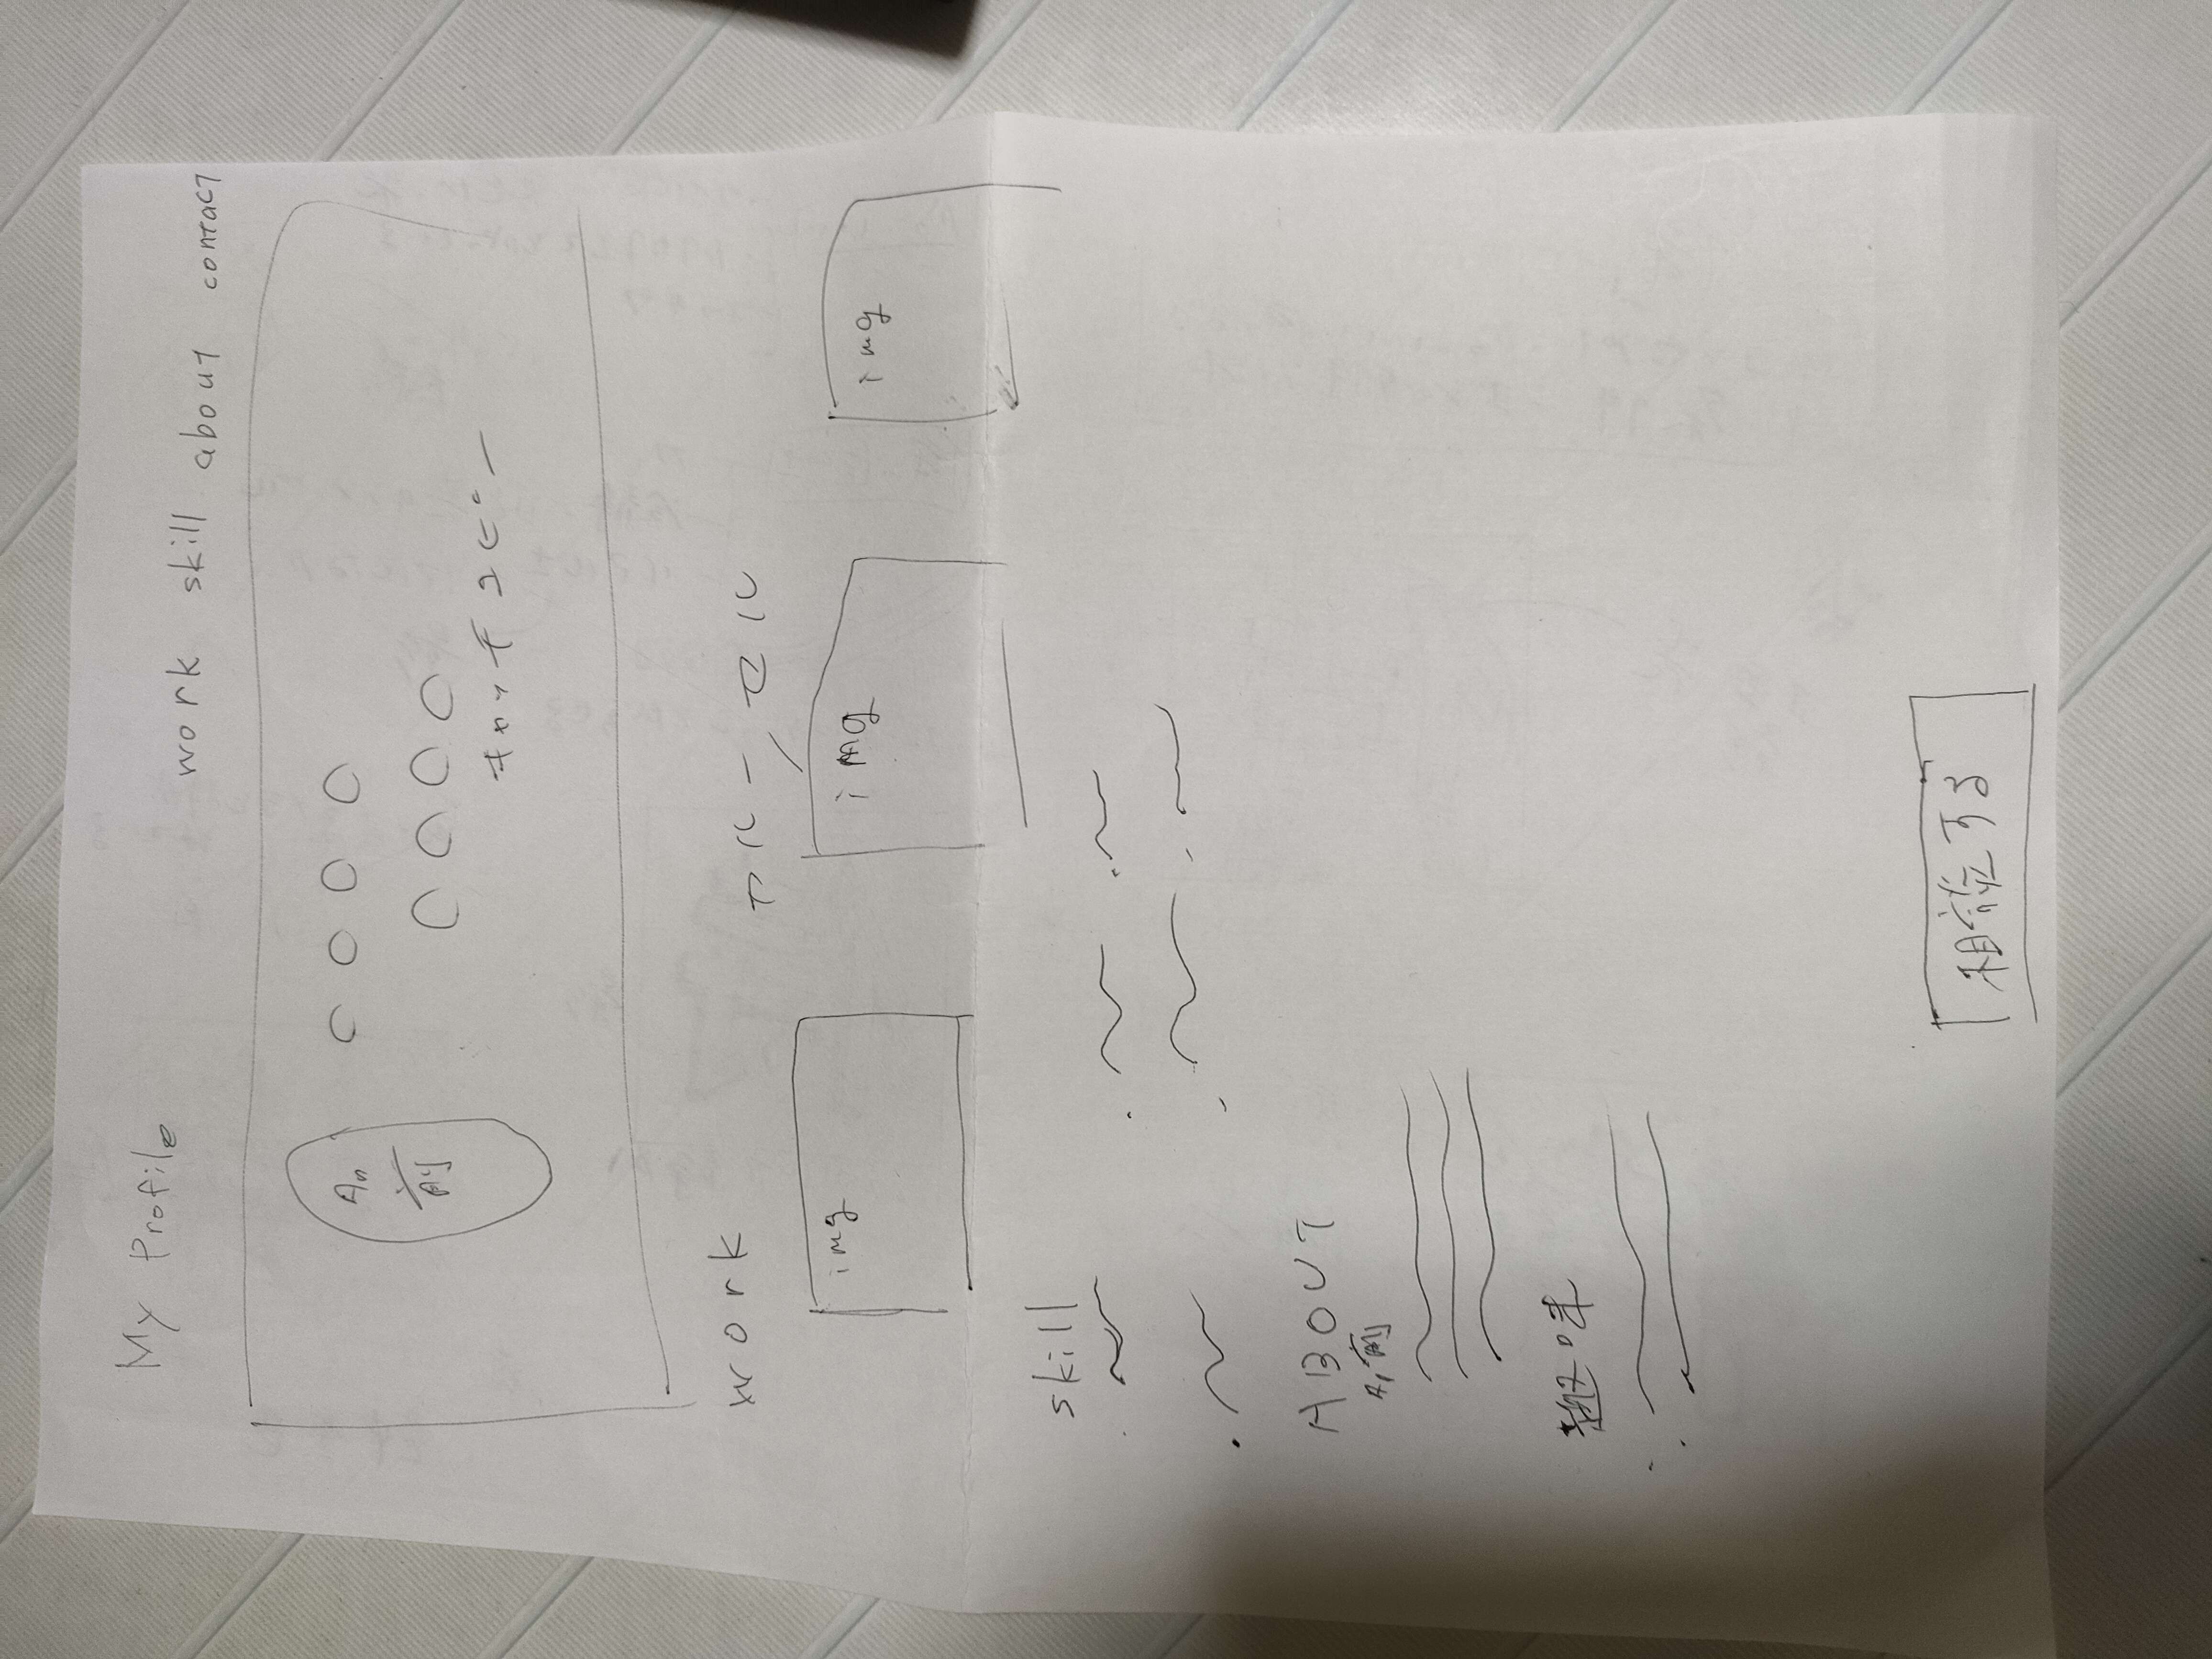 My Profile work skill about contact
○○○○
○○○○
キャッチコピー
work
カルーセル
img img img
skill
ABOUT
趣味
相談する